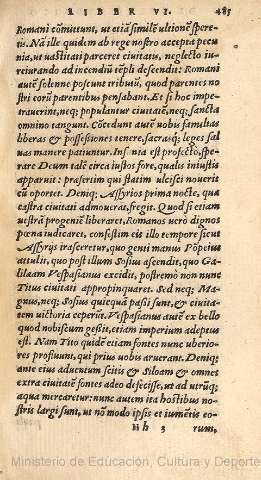 LIBER VI. 485
Romani cõmittunt, ut etiã similẽ ultionẽ spere-
tis. Nã ille quidem ab rege nostro accepta pecu
nia, ut uastitati parceret ciuitatis, neglecto iu-
reiurando ad incendiũ tẽpli descendit: Romani
autẽ solenne poscunt tributũ, quod parentes no
stri eorũ parentibus pensabant. Et si hoc impe
trauerint, neq; populantur ciuitatẽ, neq; sancta
omnino tangunt. Cõcedunt autẽ uobis familias
liberas & possessiones tenere, sacrasq; leges sal
uas manere patiuntur. Insania est profectò, spe-
rare Deum talẽ circa iustos fore, qualis iniustis
apparuit: præsertim qui statim ulcisci nouerit
cũ oportet. Deniq; Assyrios prima nocte, qua
castra ciuitati admouerat, fregit. Quòd si etiam
uestrã progeniẽ liberaret, Romanos uerò dignos
pœna iudicaret, confestim eis illo tempore sicut
Assyrijs irasceretur, quo genti manus Põpeius
attulit, quo post illum Sosius ascendit, quo Ga
lilæam Vespasianus excidit, postremò non nunc
Titus ciuitati appropinquaret. Sed neq; Ma-
gnus, neq; Sosius quicquã passi sunt, & ciuita-
tem uictoria ceperũt. Vespasianus autẽ ex bello
quod nobiscum gessit, etiam imperium adeptus
est. Nam Tito quidẽ etiam fontes nunc uberio-
res profluunt, qui prius uobis aruerant. Deniq;
ante eius aduentum scitis & Siloam & omnes
extra ciuitatẽ fontes adeo defecisse, ut ad utrũq;
aqua mercaretur: nunc autem ita hostibus no-
stris largi sunt, ut nõ modò ipsis et iumẽtis eo-
hh 3 rum,
Ministerio de Educación, Cultura y Deporte